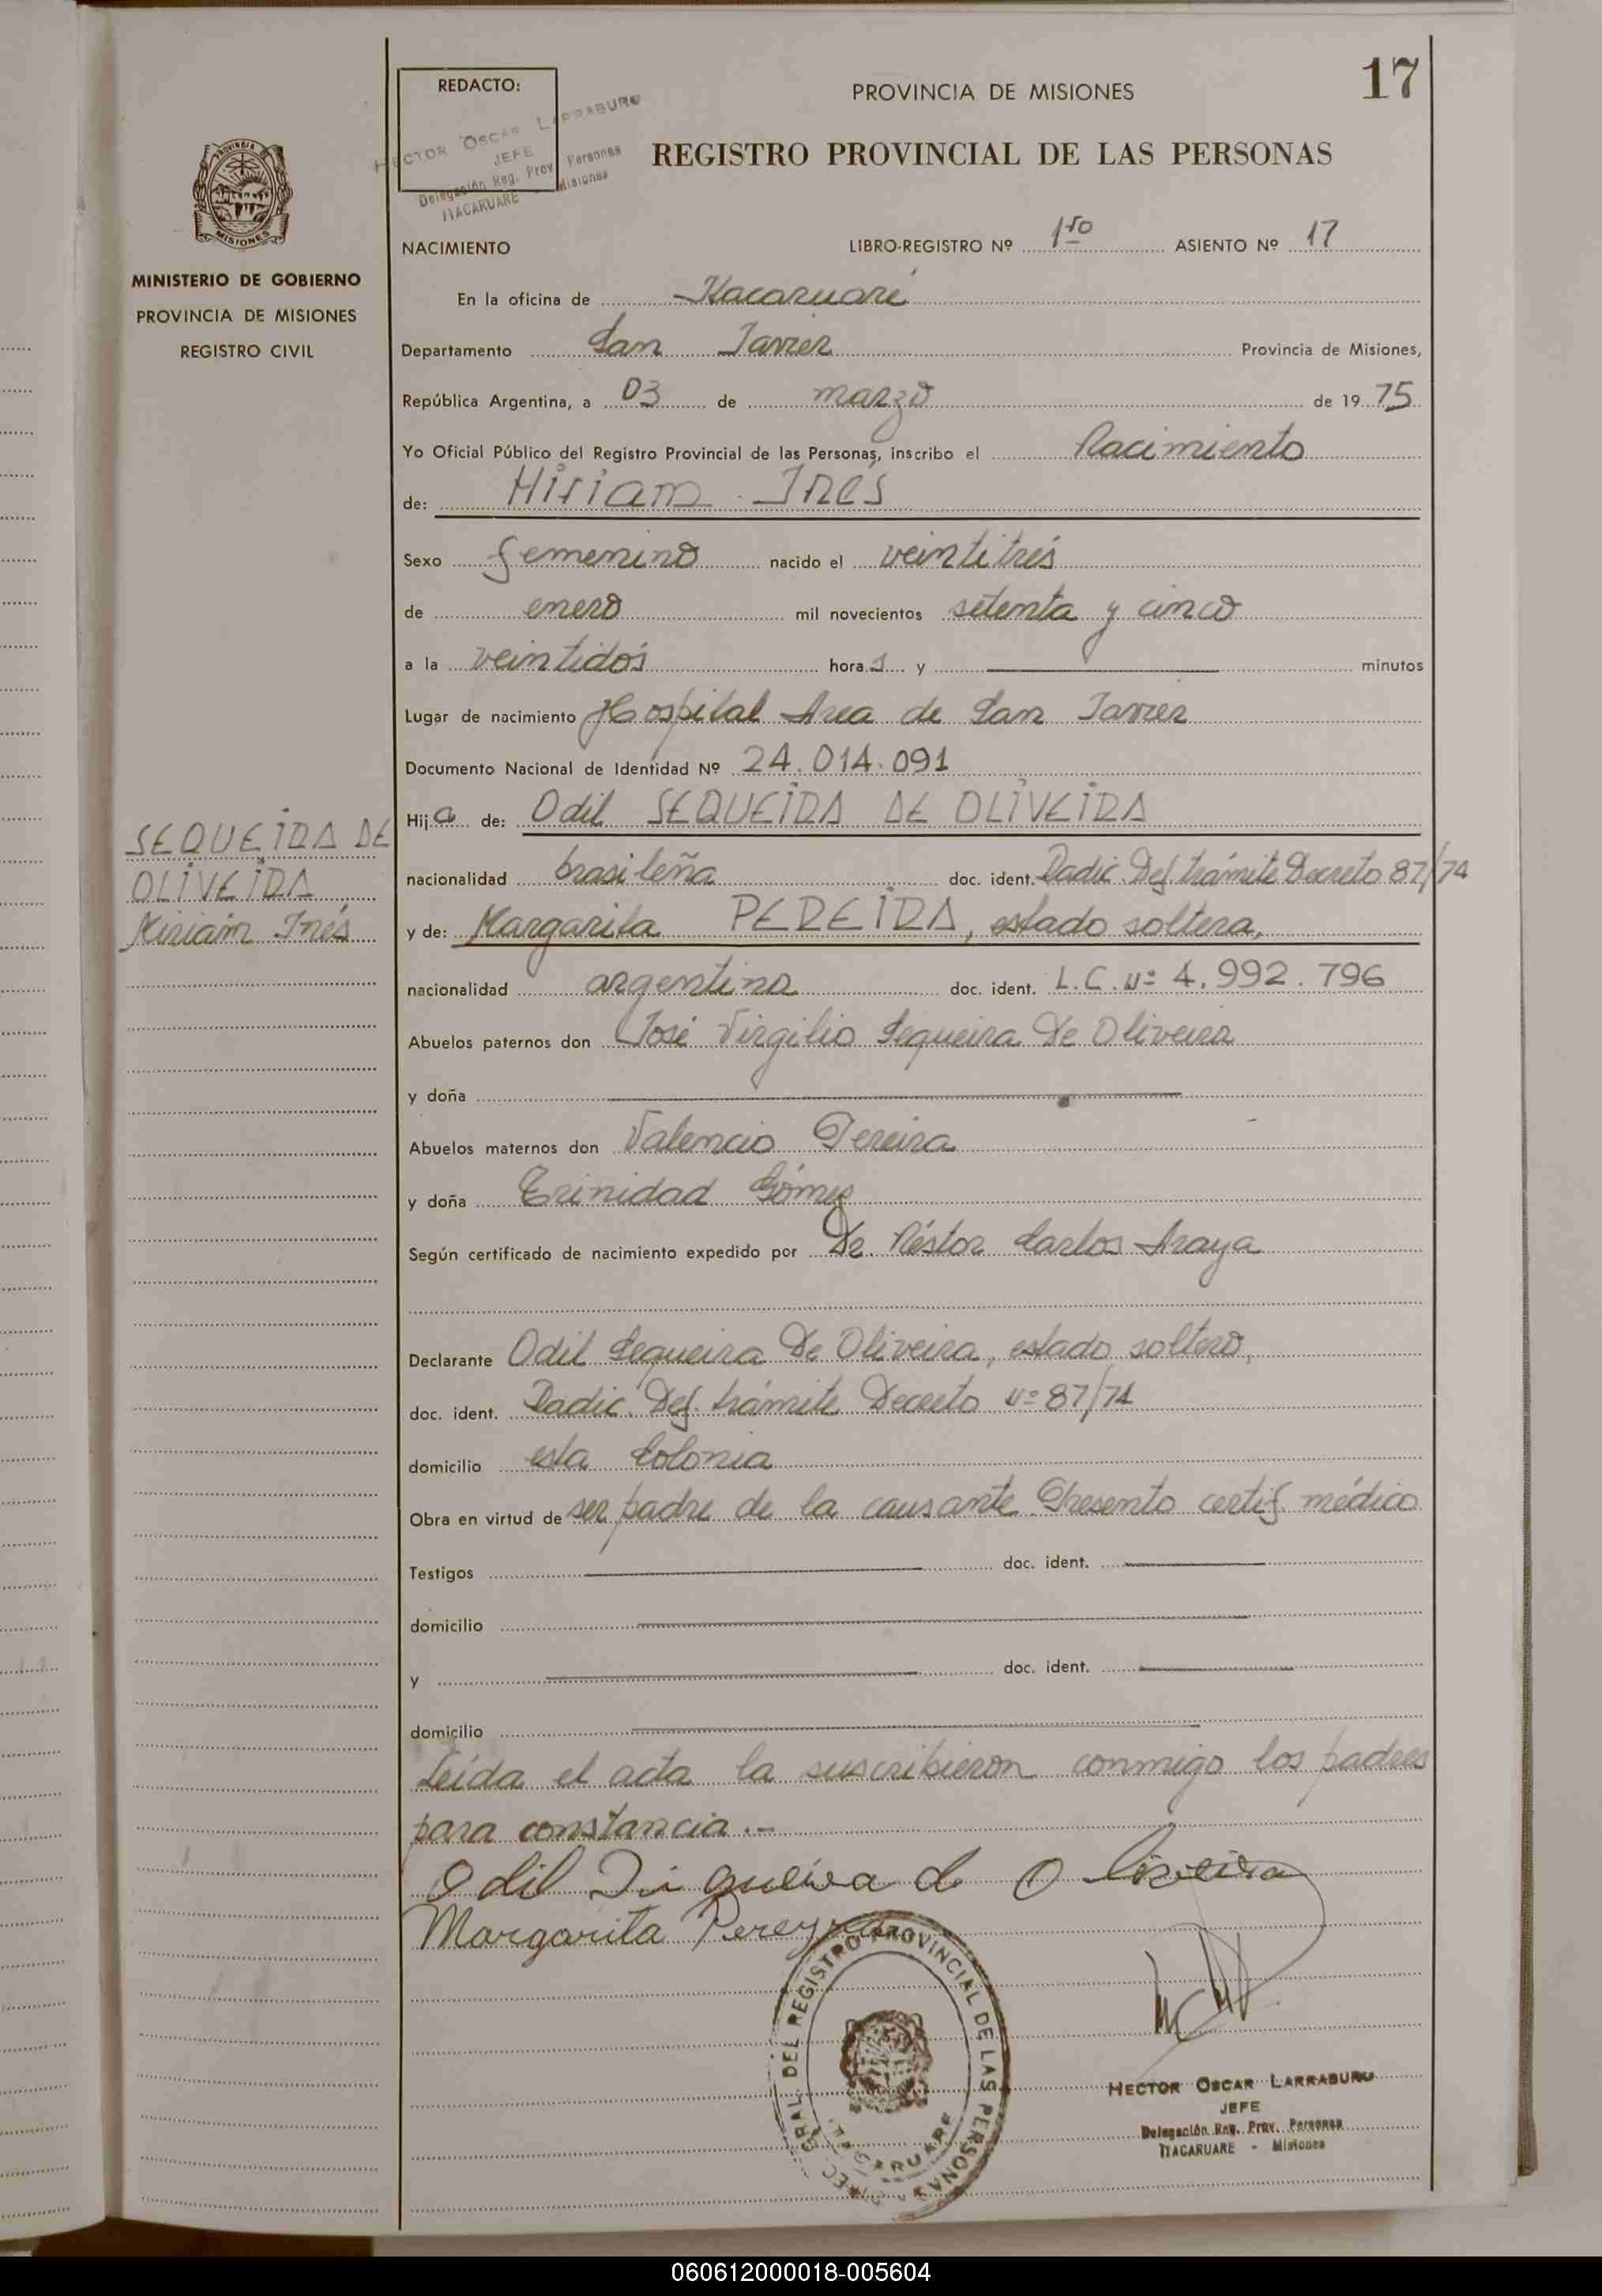 17
REDACTO:
HECTOR OSCAR LARRABURU
JEFE
Delegación Reg. Prov. Personas
ITACARUARE - Misiones
PROVINCIA DE MISIONES
REGISTRO PROVINCIAL DE LAS PERSONAS
PROVINCIA DE MISIONES
MINISTERIO DE GOBIERNO
PROVINCIA DE MISIONES
REGISTRO CIVIL
NACIMIENTO LIBRO-REGISTRO Nº 1ro ASIENTO Nº 17
En la oficina de Itacaruaré
Departamento San Javier Provincia de Misiones,
República Argentina, a 03 de marzo de 1975
Yo Oficial Público del Registro Provincial de las Personas, inscribo el Nacimiento
de: Miriam Inés
Sexo femenino nacido el veintitrés
de enero mil novecientos setenta y cinco
a la veintidós hora s y minutos
Lugar de nacimiento Hospital Area de San Javier
Documento Nacional de Identidad Nº 24.014.091
Hija de: Odil SEQUEIRA DE OLIVEIRA
SEQUEIRA DE
OLIVEIRA
Miriam Inés
nacionalidad brasileña doc. ident. Radic. Def. trámite Decreto 87/74
y de: Margarita PEREIRA, estado soltera,
nacionalidad argentina doc. ident. L.C. Nº 4.992.796
Abuelos paternos don José Virgilio Sequeira De Oliveira
y doña
Abuelos maternos don Valencio Pereira
y doña Trinidad Gómez
Según certificado de nacimiento expedido por Dr. Néstor Carlos Araya
Declarante Odil Sequeira De Oliveira, estado soltero,
doc. ident. Radic. Def. trámite Decreto Nº 87/74
domicilio esta Colonia
Obra en virtud de ser padre de la causante. Presento certif. médico
Testigos doc. ident.
domicilio
y doc. ident.
domicilio
Leída el acta la suscribieron conmigo los padres
para constancia.-
Odil Siqueira de Oliveira
Margarita Pereyra
GRAL. DEL REGISTRO PROVINCIAL DE LAS PERSONAS
ITACARUARE
HECTOR OSCAR LARRABURU
JEFE
Delegación Reg. Prov. Personas
ITACARUARE - Misiones
060612000018-005604